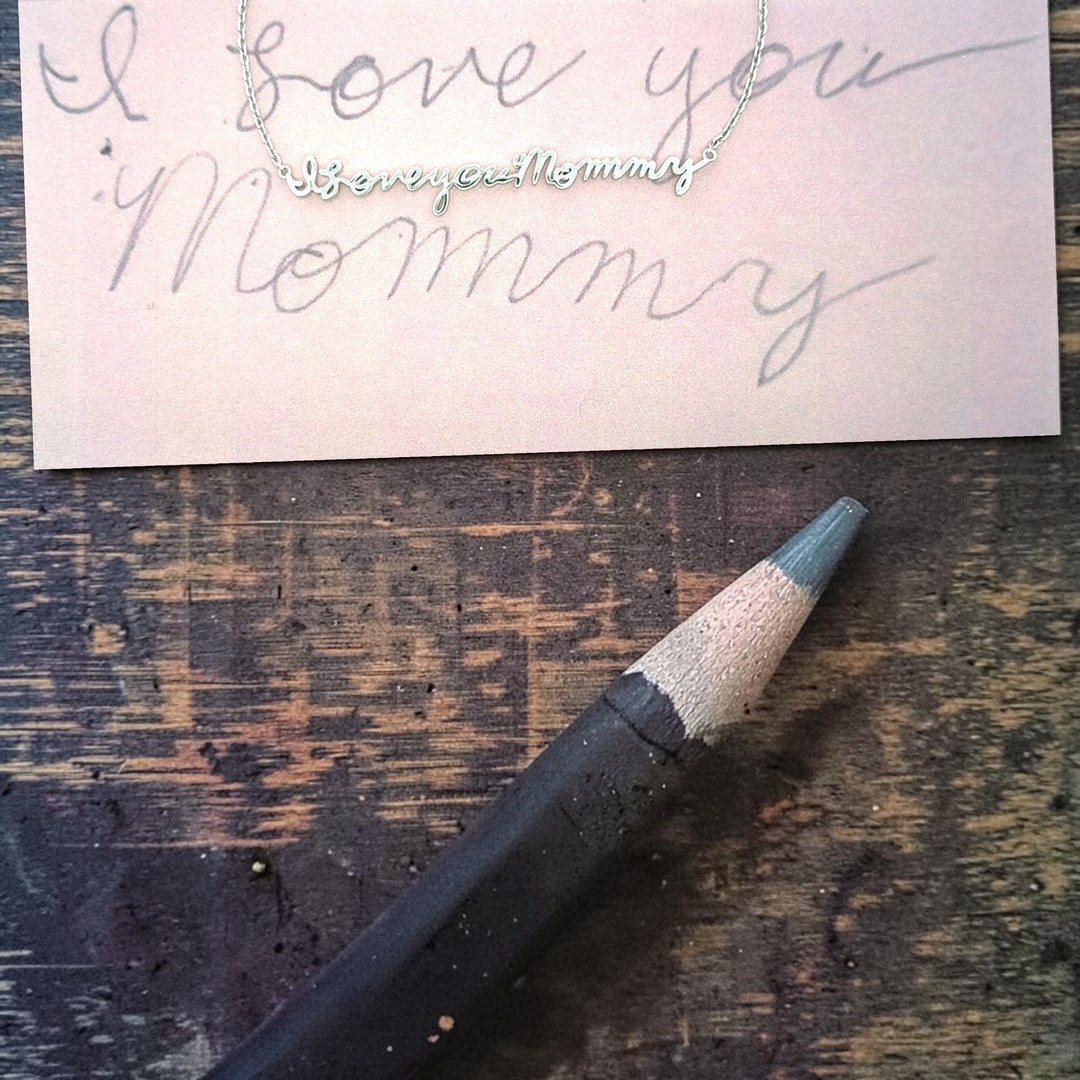 I Love you
I Love you Mommy
Mommy